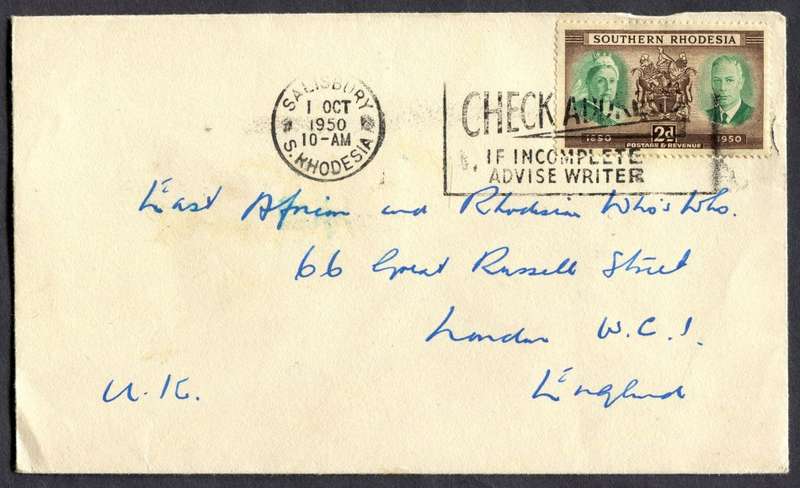 SALISBURY
1 OCT
1950
10-AM
S. RHODESIA
CHECK
IF INCOMPLETE
ADVISE WRITER
SOUTHERN RHODESIA
1890 2d 1950
POSTAGE & REVENUE
East African and Rhodesian Who's Who.
66 Great Russell Street
London W.C.1.
England
U.K.